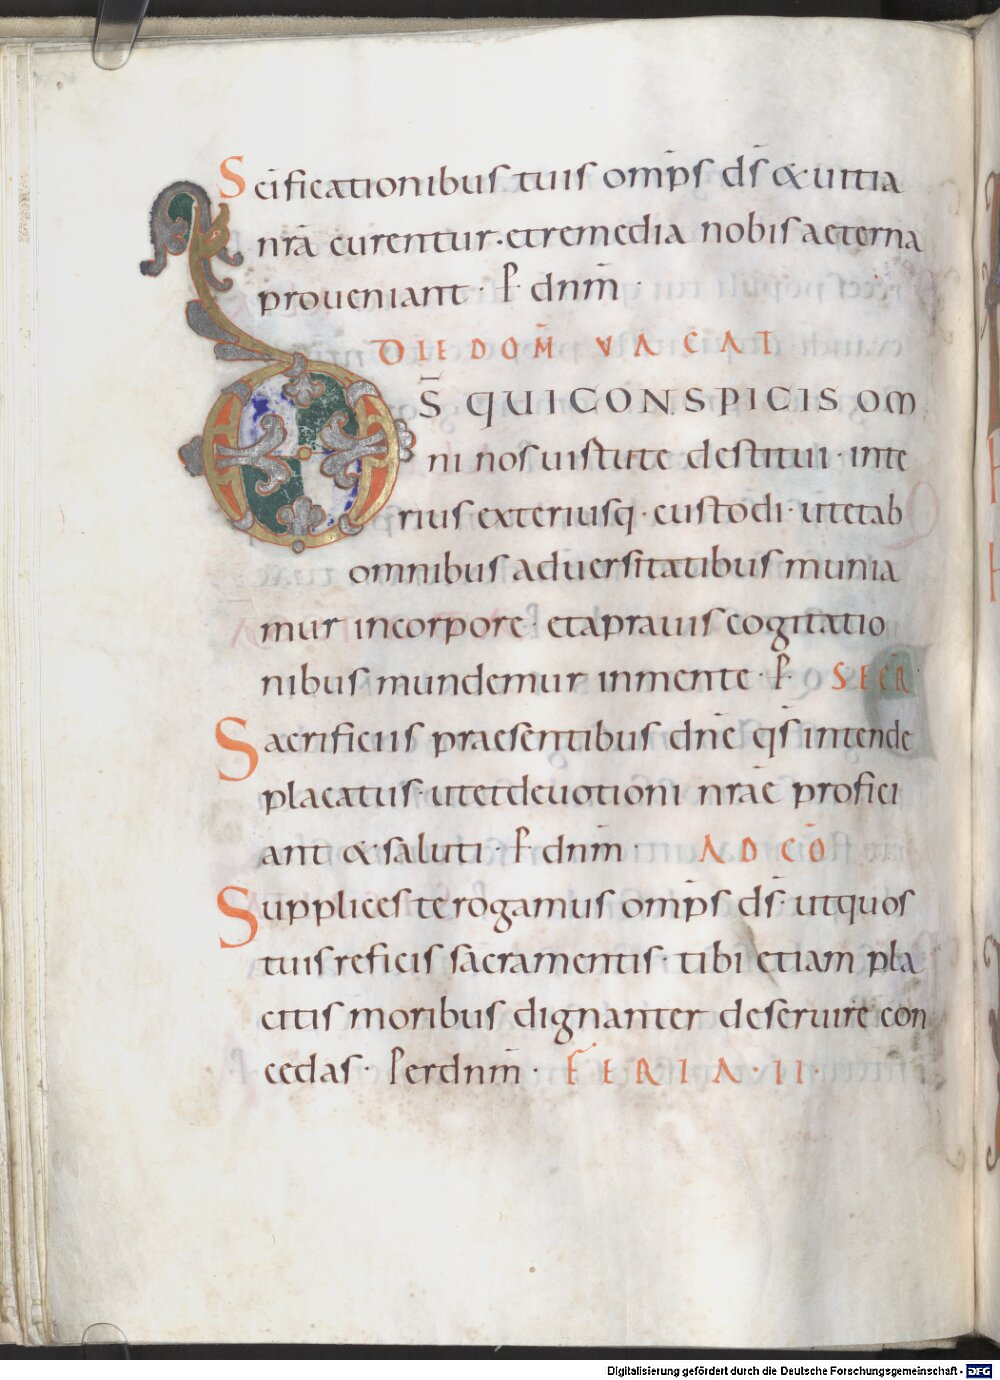 Scīficationibus tuis omp̄s ds̄ & uitia
nr̄a curentur · et remedia nobis aeterna
proueniant · P̄ dnm̄ ·
DIE DOM̄ VACAT
D S̄ QUI CONSPICIS OM
ni nos uirtute destitui · inte
rius exteriusq · custodi · ut et ab
omnibus aduersitatibus munia
mur in corpore · et a prauis cogitatio
nibus mundemur in mente · P̄ SECR̄
Sacrificiis praesentibus dn̄e qs̄ intende
placatus · ut et deuotioni nr̄ae profici
ant & saluti · P̄ dnm̄ · AD CŌ
Supplices te rogamus omp̄s ds̄ · ut quos
tuis reficis sacramentis · tibi etiam pla
citis moribus dignanter deseruire con
cedas · Per dnm̄ · FERIA · II ·
Digitalisierung gefördert durch die Deutsche Forschungsgemeinschaft - DFG